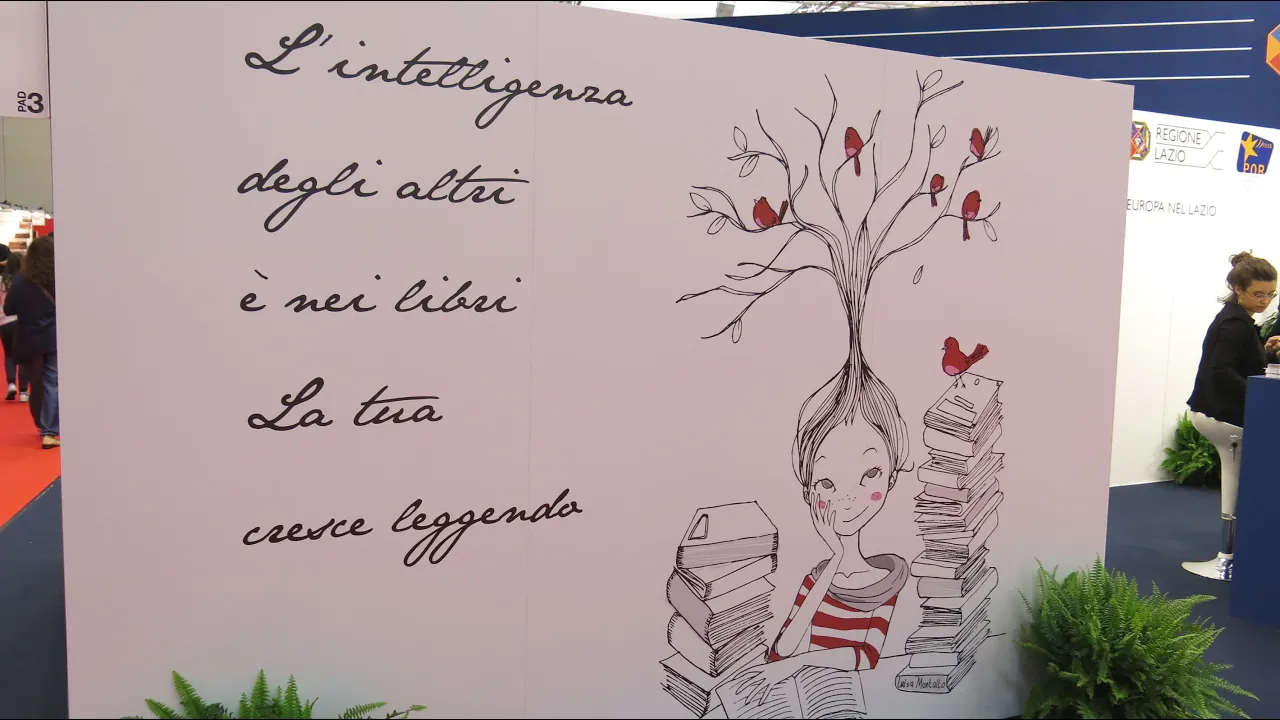 L'intelligenza
degli altri
è nei libri
La tua
cresce leggendo
PAD 3
REGIONE
LAZIO
POR
EUROPA NEL LAZIO
Luisa Montalto